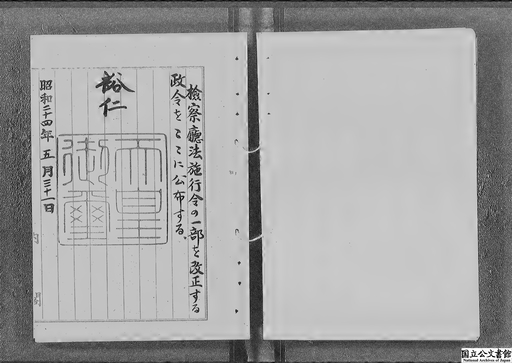 檢察廳法施行令の一部を改正する
政令をここに公布する。
裕仁
天皇
御璽
昭和二十四年五月三十一日
内閣
国立公文書館
National Archives of Japan